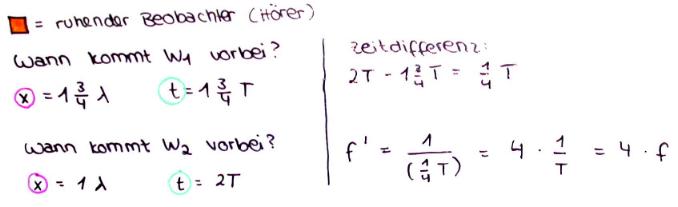 = ruhender Beobachter (Hörer)
Wann kommt W₁ vorbei?
x = 1 3/4 λ t = 1 3/4 T
Wann kommt W₂ vorbei?
x = 1 λ t = 2T
Zeitdifferenz:
2T - 1 3/4 T = 1/4 T
f' = 1/(1/4 T) = 4 · 1/T = 4 · f